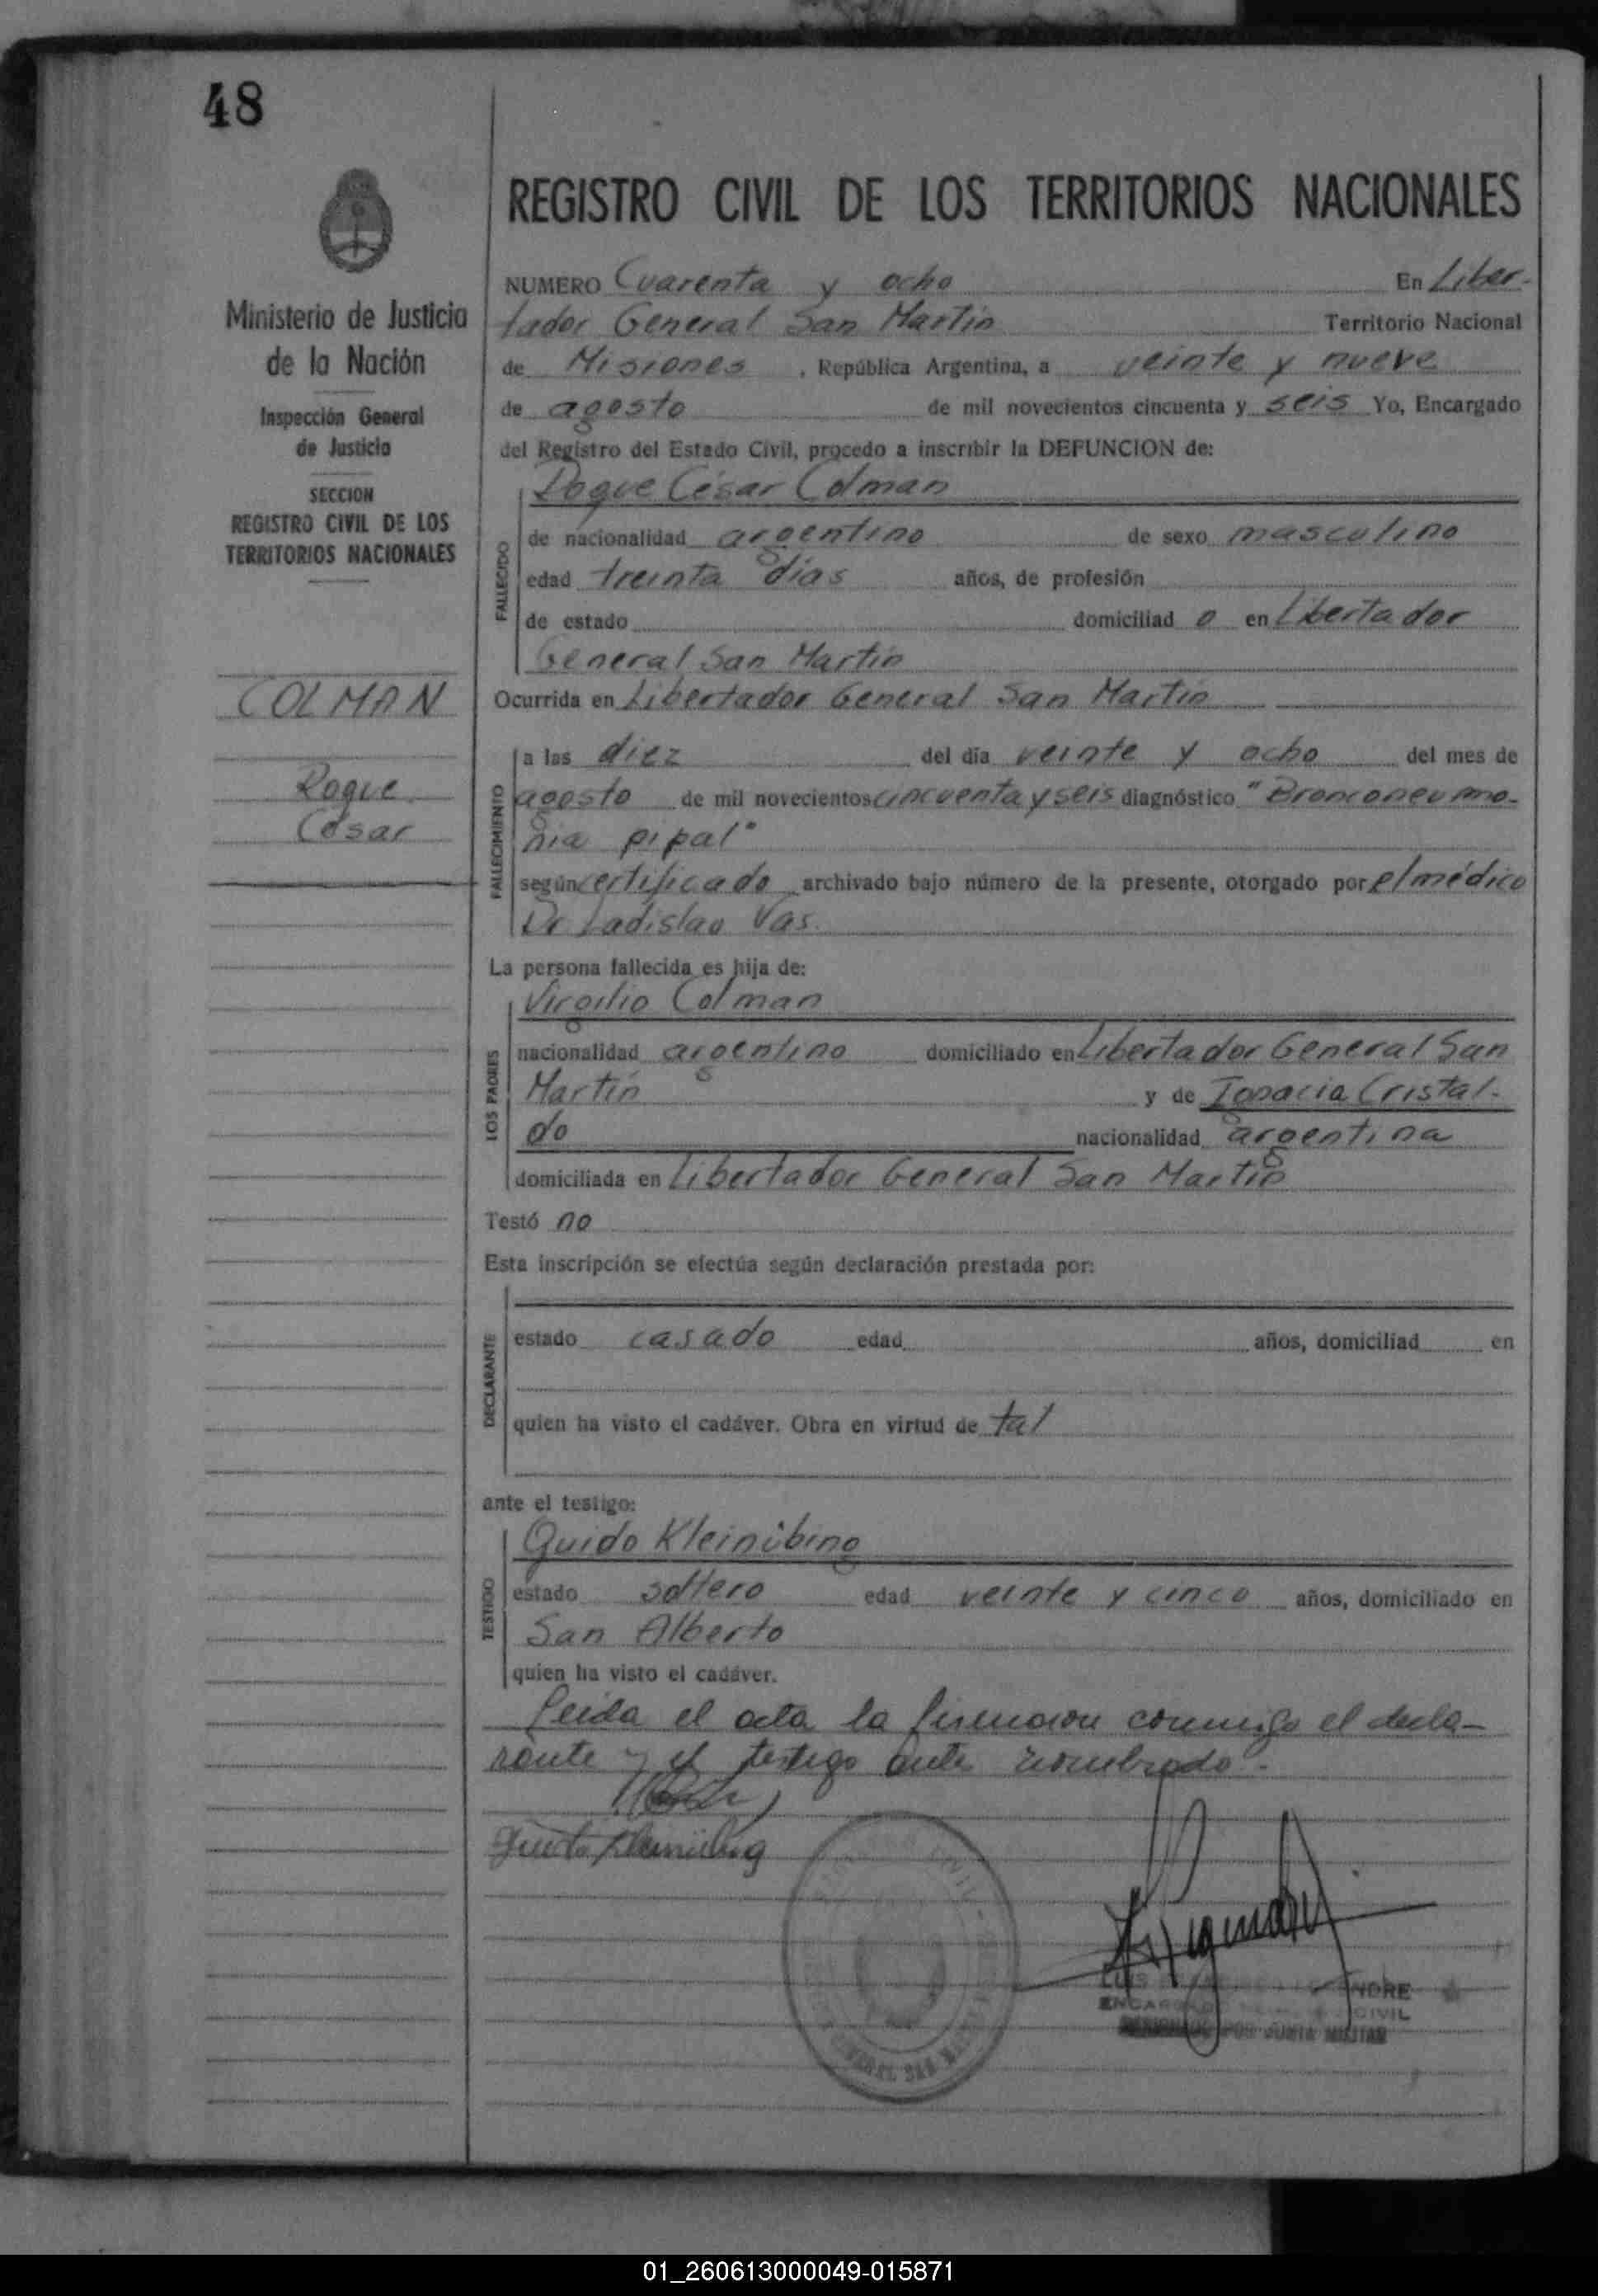 48
Ministerio de Justicia
de la Nación
Inspección General
de Justicia
SECCION
REGISTRO CIVIL DE LOS
TERRITORIOS NACIONALES
COLMAN
Roque
César
REGISTRO CIVIL DE LOS TERRITORIOS NACIONALES
NUMERO Cuarenta y ocho En Liber-
tador General San Martín Territorio Nacional
de Misiones, República Argentina, a veinte y nueve
de agosto de mil novecientos cincuenta y seis Yo, Encargado
del Registro del Estado Civil, procedo a inscribir la DEFUNCION de:
Roque César Colman
FALLECIDO
de nacionalidad argentino de sexo masculino
edad treinta días años, de profesión
de estado domiciliad o en Libertador
General San Martín
Ocurrida en Libertador General San Martín
FALLECIMIENTO
a las diez del día veinte y ocho del mes de
agosto de mil novecientos cincuenta y seis diagnóstico "Bronconeumo-
nia pipal"
según certificado archivado bajo número de la presente, otorgado por el médico
Dr Ladislao Vas.
La persona fallecida es hija de:
LOS PADRES
Virgilio Colman
nacionalidad argentino domiciliado en Libertador General San
Martín y de Ignacia Cristal-
do nacionalidad argentina
domiciliada en Libertador General San Martín
Testó no
Esta inscripción se efectúa según declaración prestada por:
DECLARANTE
estado casado edad años, domiciliad en
quien ha visto el cadáver. Obra en virtud de tal
ante el testigo:
TESTIGO
Guido Kleinibing
estado soltero edad veinte y cinco años, domiciliado en
San Alberto
quien ha visto el cadáver.
Leida el acta la firmaron conmigo el decla-
rante y el testigo antes nombrado.-
LUIS
ENCARGADO CIVIL
POR JUNTA MILITAR
GENERAL SAN
01_260613000049-015871